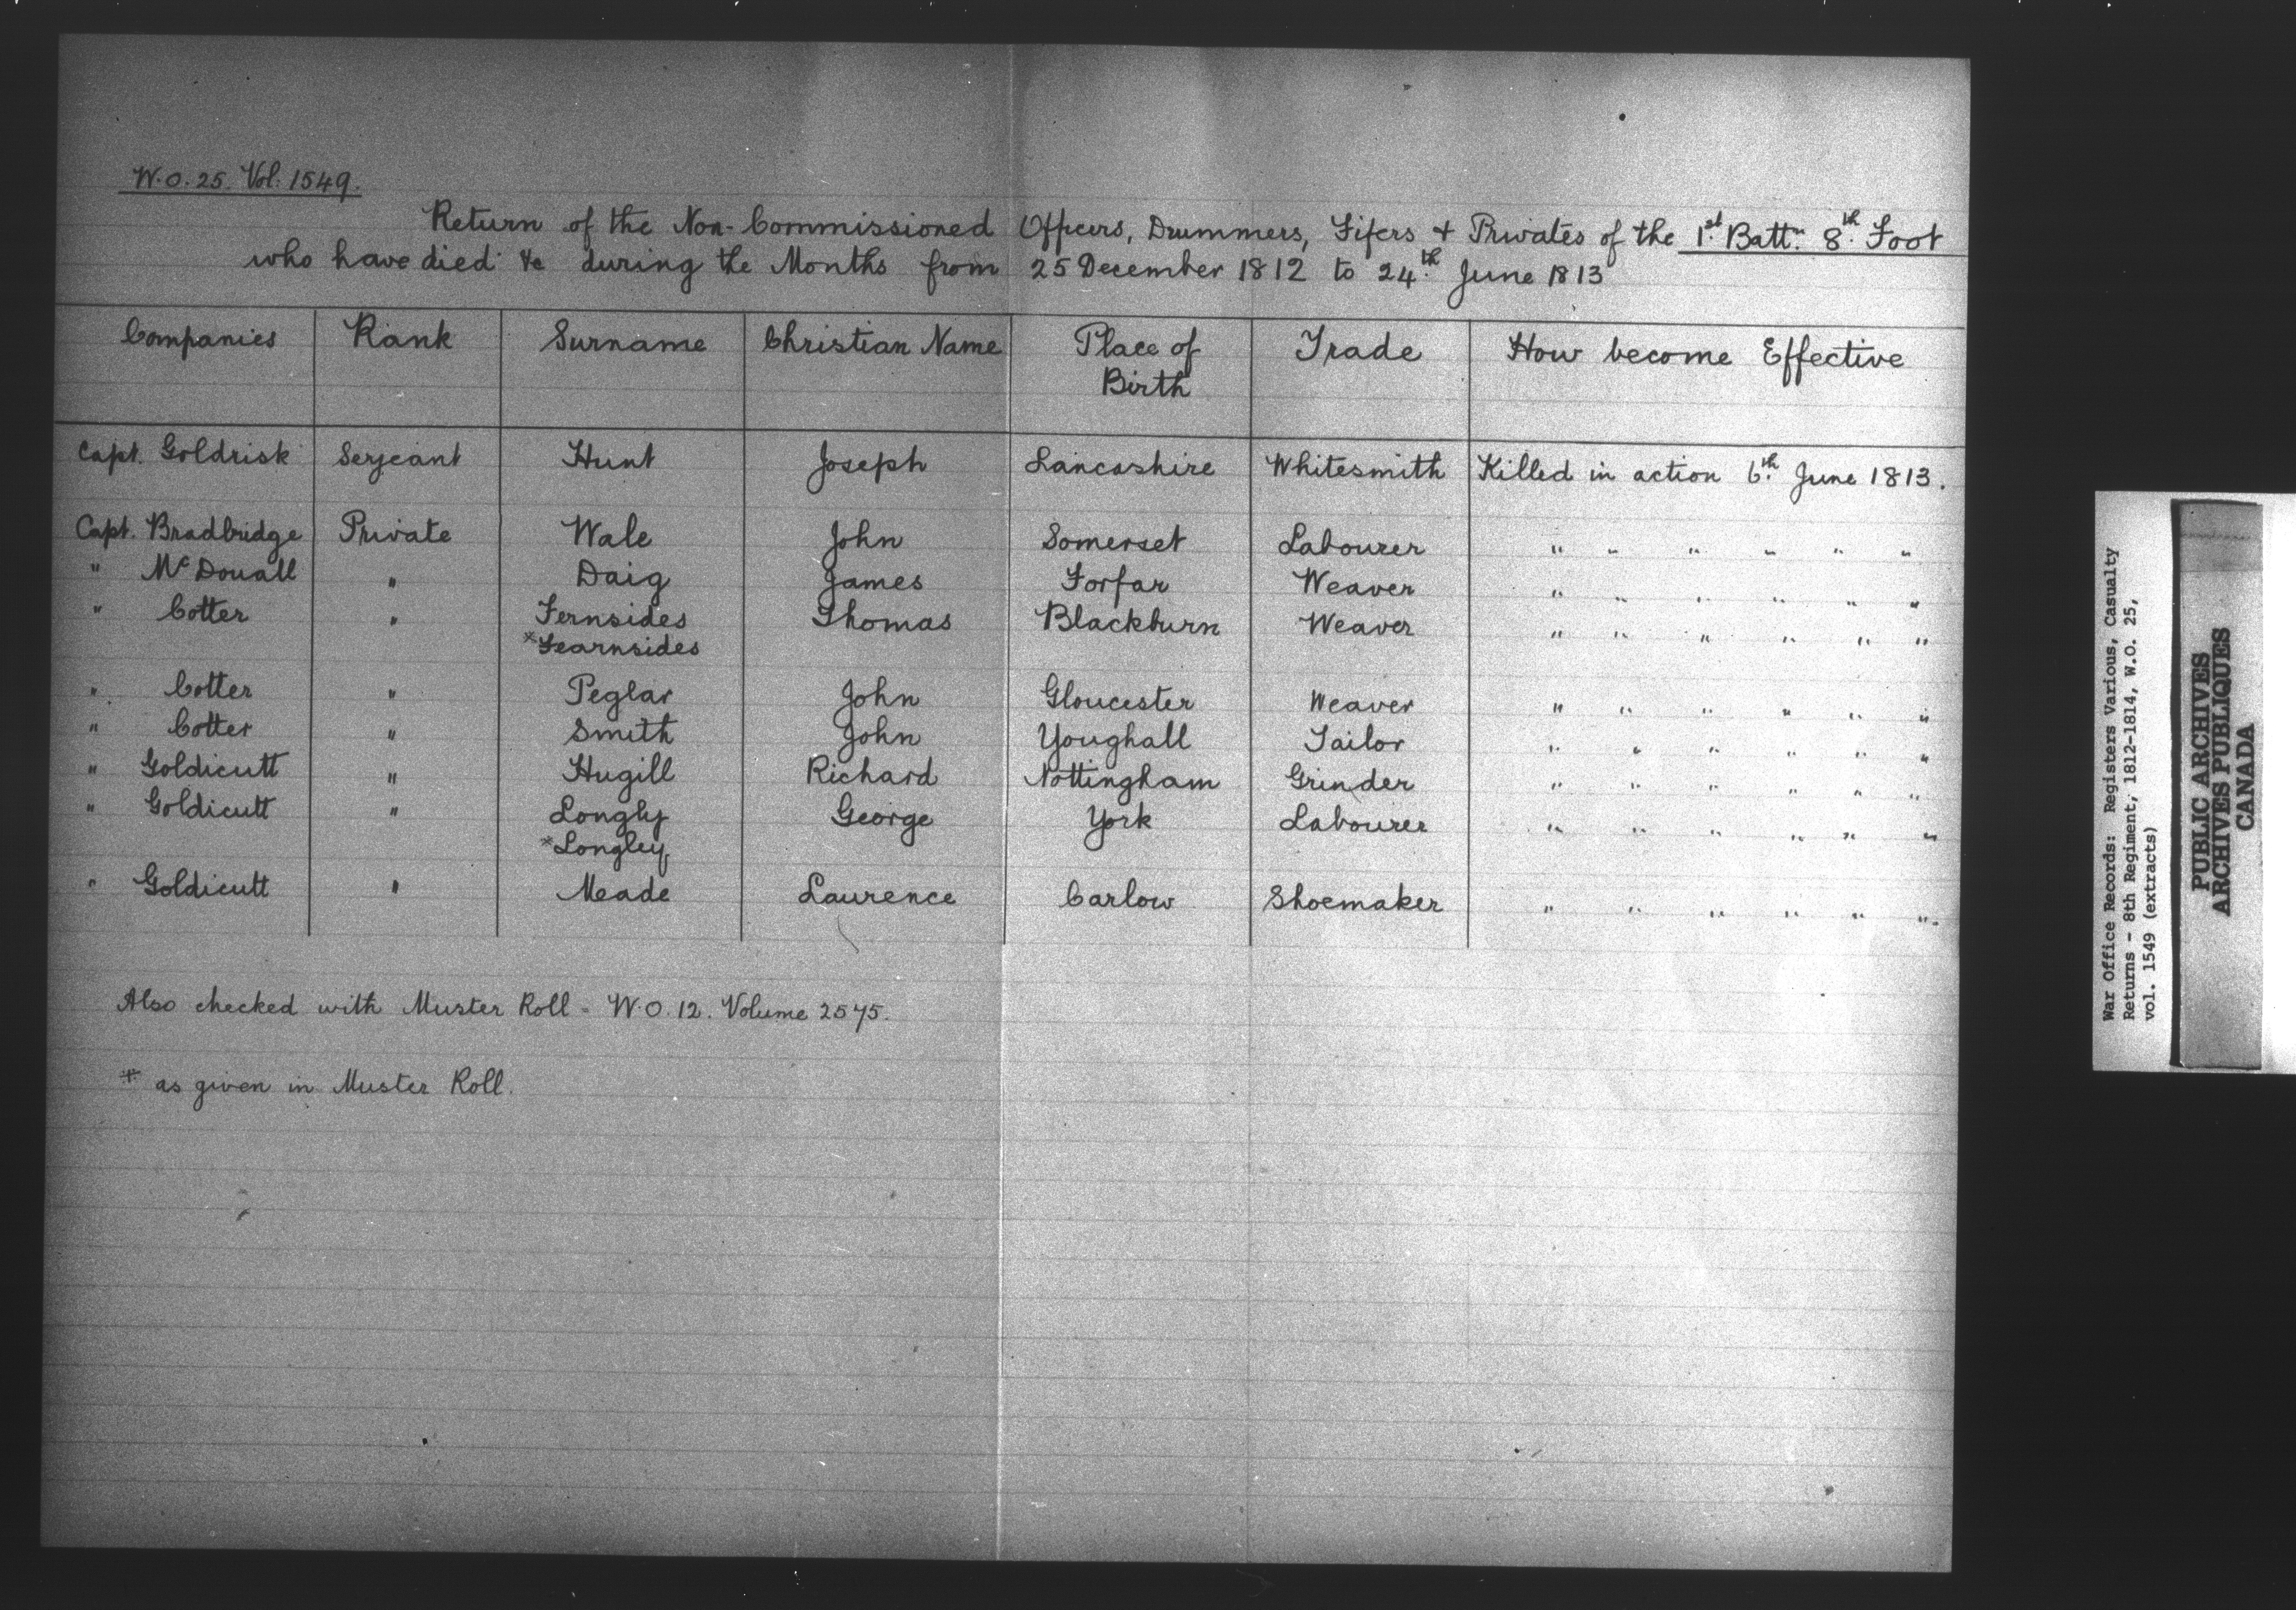 W.O. 25. Vol: 1549.
Return of the Non-Commissioned Officers, Drummers, Fifers + Privates of the 1st Battn. 8th. Foot
who have died &c during the Months from 25 December 1812 to 24th. June 1813
Companies Rank Surname Christian Name Place of Birth Trade How become Effective
Capt. Goldrisk Serjeant Hunt Joseph Lancashire Whitesmith Killed in action 6th. June 1813.
Capt. Bradbridge Private Wale John Somerset Labourer " " " " " "
" McDouall " Daig James Forfar Weaver " " " " " "
" Cotter " Fernsides Thomas Blackburn Weaver " " " " " "
*Fearnsides
" Cotter " Peglar John Gloucester Weaver " " " " " "
" Cotter " Smith John Youghall Tailor " " " " " "
" Goldicutt " Hugill Richard Nottingham Grinder " " " " " "
" Goldicutt " Longly George York Labourer " " " " " "
*Longley
" Goldicutt " Meade Laurence Carlow Shoemaker " " " " " ".
Also checked with Muster Roll - W.O. 12. Volume 2575.
* as given in Muster Roll.
War Office Records: Registers Various, Casualty
Returns - 8th Regiment, 1812-1814, W.O. 25,
vol. 1549 (extracts)
PUBLIC ARCHIVES
ARCHIVES PUBLIQUES
CANADA